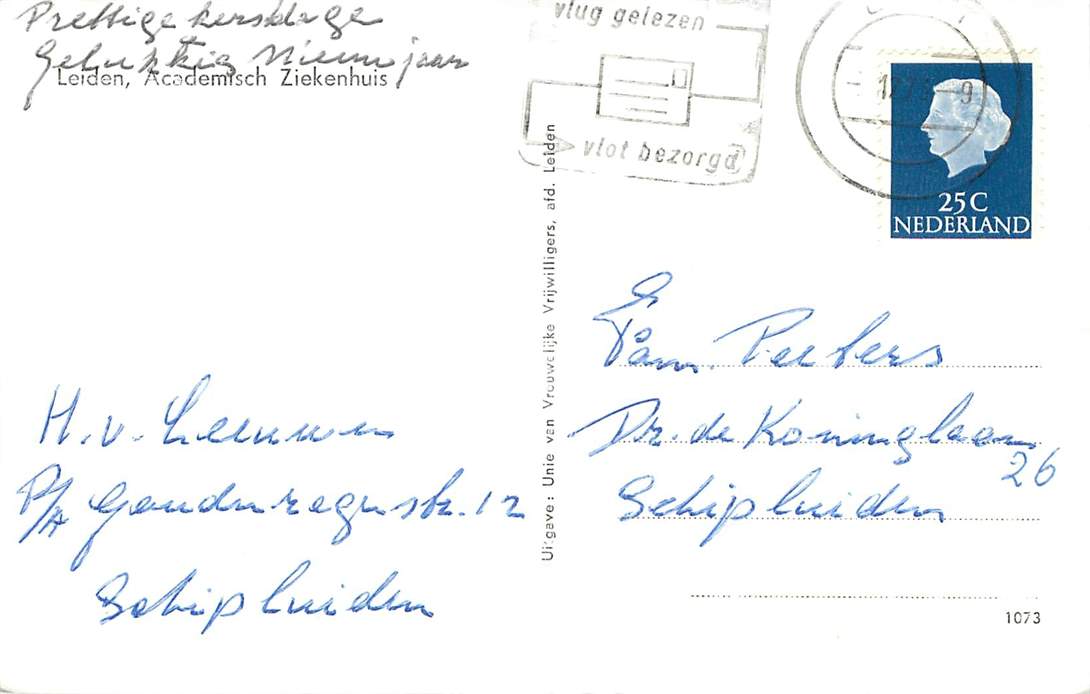 Prettige kersdage
Gelukkig Nieuwjaar
Leiden, Academisch Ziekenhuis
H. v. Leeuwen
P/A
str. 12
Schipluiden
Uitgave: Unie van Vrouwelijke Vrijwilligers, afd. Leiden
vlug gelezen
vlot bezorgd
25 C
NEDERLAND
Fam. Peeters
Dr. de Koninglaan
26
Schipluiden
1073